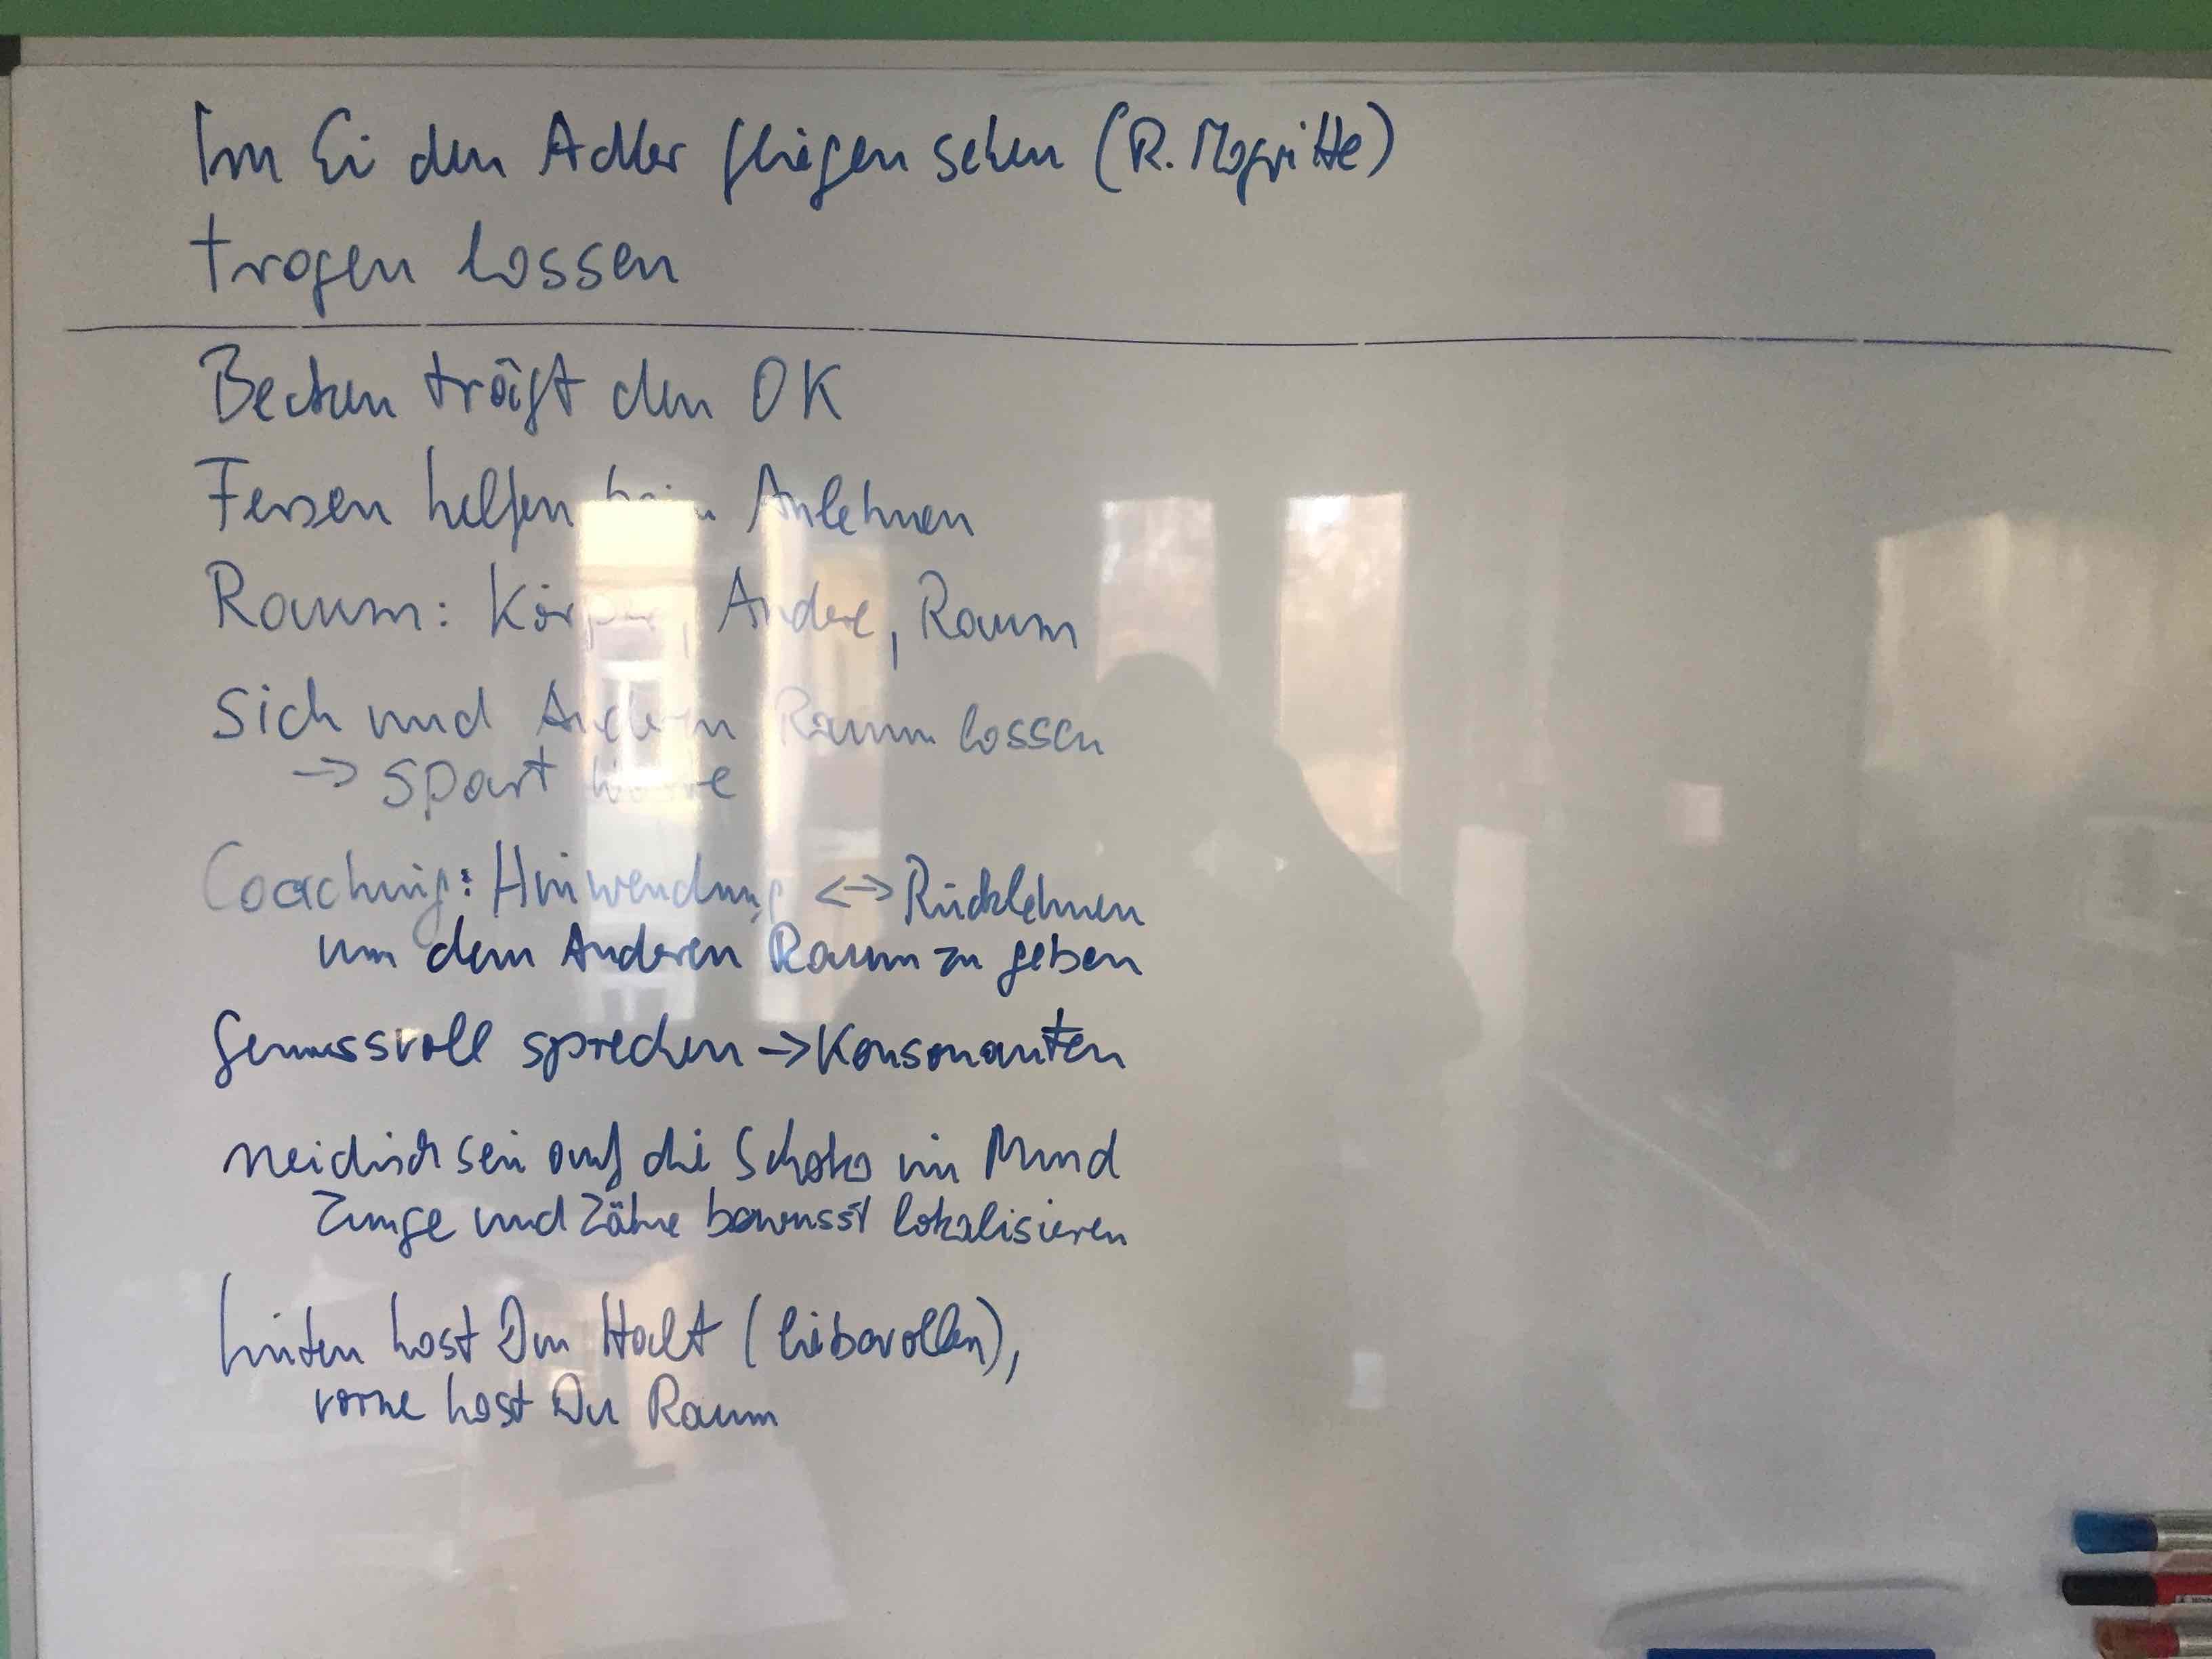 Im Ei den Adler fliegen sehen (R. Magritte)
tragen lassen
Becken trägt den OK
Fersen helfen beim Anlehnen
Raum: Körper, Andere, Raum
Sich und Andern Raum lassen
→ spart
Coaching: Hinwendung <-> Rücklehnen
um dem Anderen Raum zu geben
Genussvoll sprechen -> Konsonanten
neidisch sein auf die Schoko im Mund
Zunge und Zähne bewusst lokalisieren
hinten hast Du Halt (liebevollen),
vorne hast Du Raum